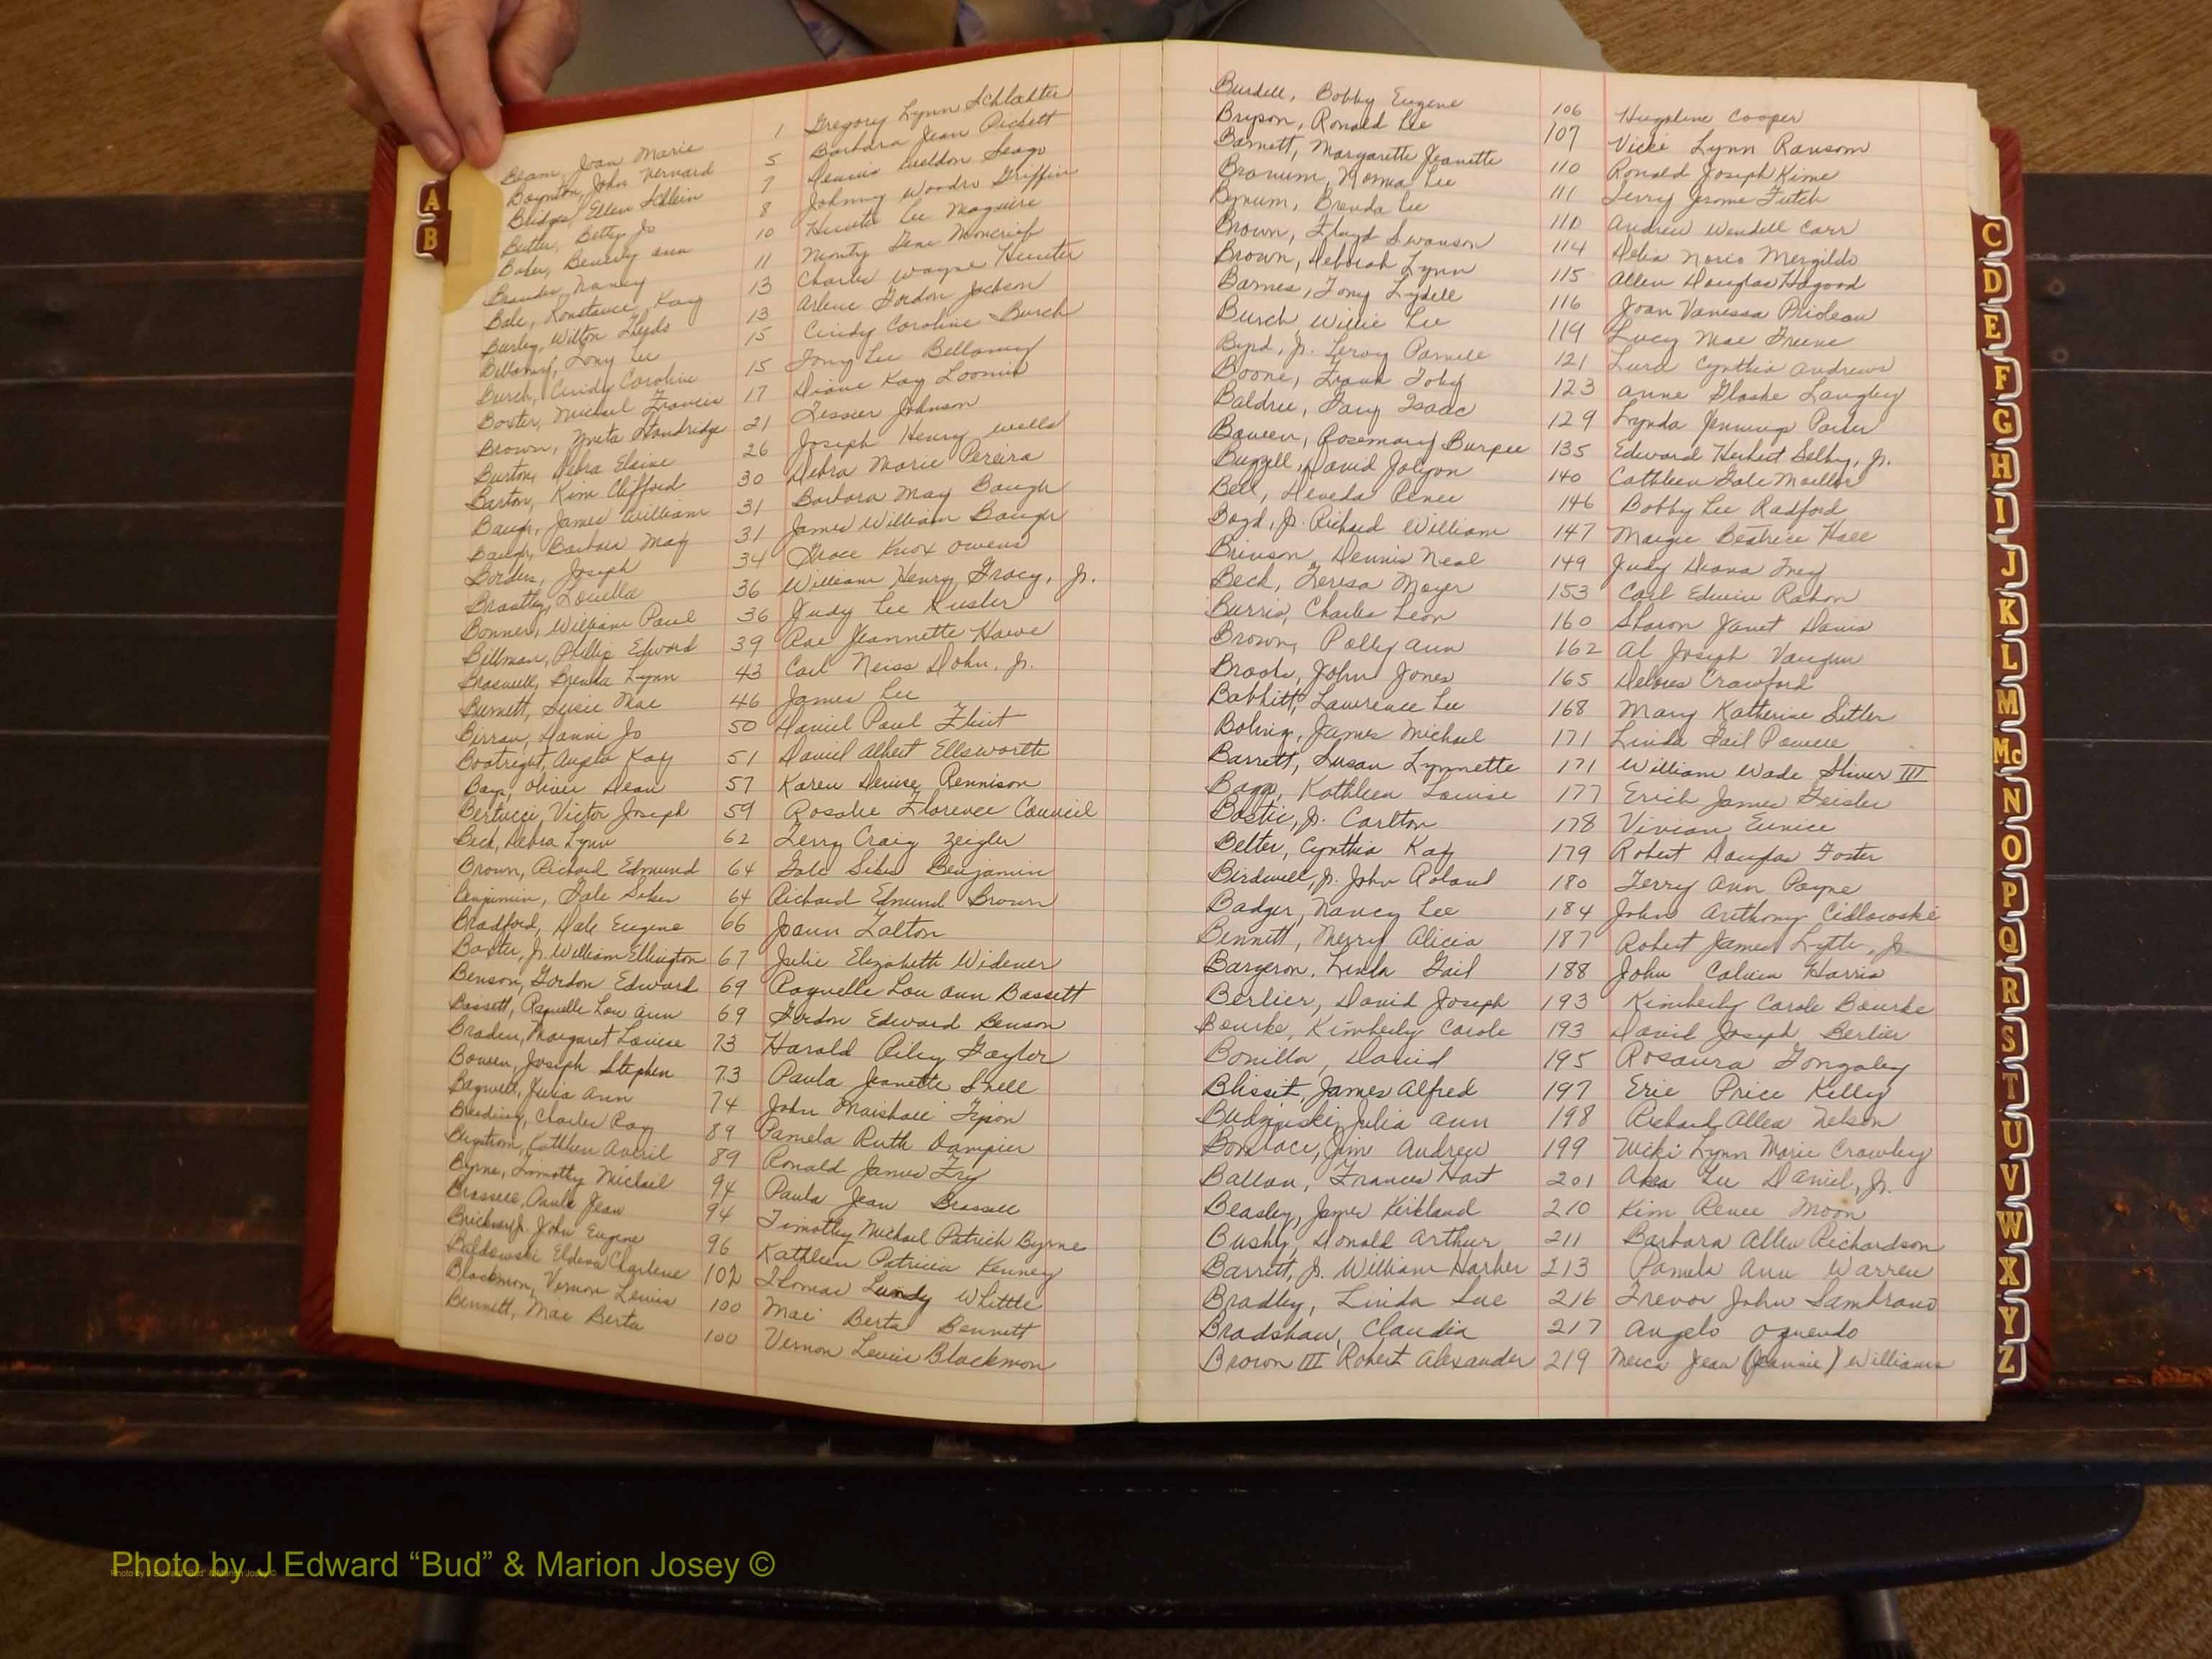 Beam, Joan Marie 1 Gregory Lynn Schlatter
Boynton, John Vernard 5 Barbara Jean Pickett
Bridges, Ellen 7 Dennis Weldon Seago
Butler, Betty Jo 8 Johnny Woodro Griffin
Baker, Beverly Ann 10 Hunter Lee Maguire
Nancy 11 Monty Gene Moncrief
Bale, Konstance Kay 13 Charles Wayne Hunter
Burley, Wilton 13 Arlene Gordon Jackson
Bellamy, Tony Lee 15 Cindy Caroline Burch
Burch, Cindy Caroline 15 Tony Lee Bellamy
Baxter, Michael Francis 17 Diane Kay Loomis
Brown, Standridge 21 Lessier Johnson
Burton, Debra Elaine 26 Joseph Henry Wells
Barton, Kim Clifford 30 Debra Marie Pereira
Baugh, James William 31 Barbara May Baugh
Baugh, Barbara May 31 James William Baugh
Borders, Joseph 34 Grace Knox Owens
Brantley, Louella 36 William Henry Gracy, Jr.
Bonner, William Paul 36 Judy Lee Kusler
Billman, Phillip Edward 39 Rae Jeannette Howe
Braswell, Brenda Lynn 43 Carl Neiss Dohn, Jr.
Burnett, Susie Mae 46 James Lee
Danni Jo 50 Daniel Paul Flint
Boatright, Angela Kay 51 Daniel Albert Ellsworth
Bays, Oliver Dean 57 Karen Denise Rennison
Bertucci, Victor Joseph 59 Rosalie Florence Council
Beck, Debra Lynn 62 Terry Craig Zeigler
Brown, Richard Edmund 64 Gale Sikes Benjamin
Benjamin, Gale Sikes 64 Richard Edmund Brown
Bradford, Dale Eugene 66 Joann Talton
Baxter, Jr. William Ellington 67 Julie Elizabeth Widener
Benson, Gordon Edward 69 Raquelle Lou Ann Bassett
Bassett, Raquelle Lou Ann 69 Gordon Edward Benson
Braden, Margaret Louise 73 Harold Riley Gayler
Bowen, Joseph Stephen 73 Paula Jeanette Snell
Bagwell, Julia Ann 74 John Marshall
Breeding, Charles Ray 89 Pamela Ruth Dampier
Kathleen 89 Ronald James Fry
Byrne, Timothy Michael 94 Paula Jean Brassell
Brassell, Paula Jean 94 Timothy Michael Patrick Byrne
Jr. John Eugene 96 Kathleen Patricia Kenney
Charlene 102 Thomas Lundy Whittle
Blackmon, Vernon Lewis 100 Mae Berta Bennett
Bennett, Mae Berta 100 Vernon Lewis Blackmon
Burdell, Bobby Eugene 106 Cooper
Bryson, Ronald Lee 107 Vicki Lynn Ransom
Barnett, Margarette Jeanette 110 Ronald Joseph Kime
Branum, Norma Lee 111 Terry Jerome Futch
Bynum, Brenda Lee 110 Andrew Wendell Carr
Brown, Floyd Swanson 114 Delia Mergildo
Brown, Deborah Lynn 115 Allen Douglas Hagood
Barnes, Tony Lydell 116 Joan Vanessa Prideau
Burch, Willie Lee 119 Lucy Mae Greene
Byrd, Jr. Leroy Parnell 121 Lura Cynthia Andrews
Boone, Frank Toby 123 Anne Langley
Baldree, Gary Isaac 129 Lynda Jennings
Bowen, Rosemary Burpee 135 Edward Herbert Selby, Jr.
Buzzell, David Jolyon 140 Cathleen Gale Moeller
Bell, Renee 146 Bobby Lee Radford
Boyd, Jr. Richard William 147 Margie Beatrice Hall
Brinson, Dennis Neal 149 Judy Diana Frey
Beck, Teresa Moyer 153 Carl Edwin Rahon
Burris, Charles Leon 160 Sharon Janet Davis
Brown, Polly Ann 162 Al Joseph Vaughn
Brooks, John Jones 165 Delores Crawford
Babbitt, Lawrence Lee 168 Mary Katherine Sitler
Boling, James Michael 171 Linda Gail Powell
Barrett, Susan Lynnette 171 William Wade Stiver III
Baggs, Kathleen Louise 177 Erich James Geisler
Bostic, Jr. Carlton 178 Vivian Eunice
Belter, Cynthia Kay 179 Robert Douglas Foster
Birdwell, Jr. John Roland 180 Terry Ann Payne
Badger, Nancy Lee 184 John Anthony Cidlowski
Bennett, Merry Alicia 187 Robert James Lytle, Jr.
Bargeron, Linda Gail 188 John Calvin Harris
Berlier, David Joseph 193 Kimberly Carole Bourke
Bourke, Kimberly Carole 193 David Joseph Berlier
Bonilla, David 195 Rosaura Gonzalez
Blissit, James Alfred 197 Erie Price Kelley
Budzinski, Julia Ann 198 Richard Allen Nelson
Boniface, Jim Andrew 199 Vicki Lynn Marie Crowley
Ballou, Frances Hart 201 Asa Lee Daniel, Jr.
Beasley, James Kirkland 210 Kim Renee Moon
Busby, Donald Arthur 211 Barbara Allen Richardson
Barrett, Jr. William Harher 213 Pamela Ann Warren
Bradley, Linda Sue 216 Trevor John Sambrano
Bradshaw, Claudia 217 Angelo Oquendo
Brown III Robert Alexander 219 Jean (Jeannie) Williams
A
B
C
D
E
F
G
H
I
J
K
L
M
Mc
N
O
P
Q
R
S
T
U
V
W
X
Y
Z
Photo by J Edward “Bud” & Marion Josey ©